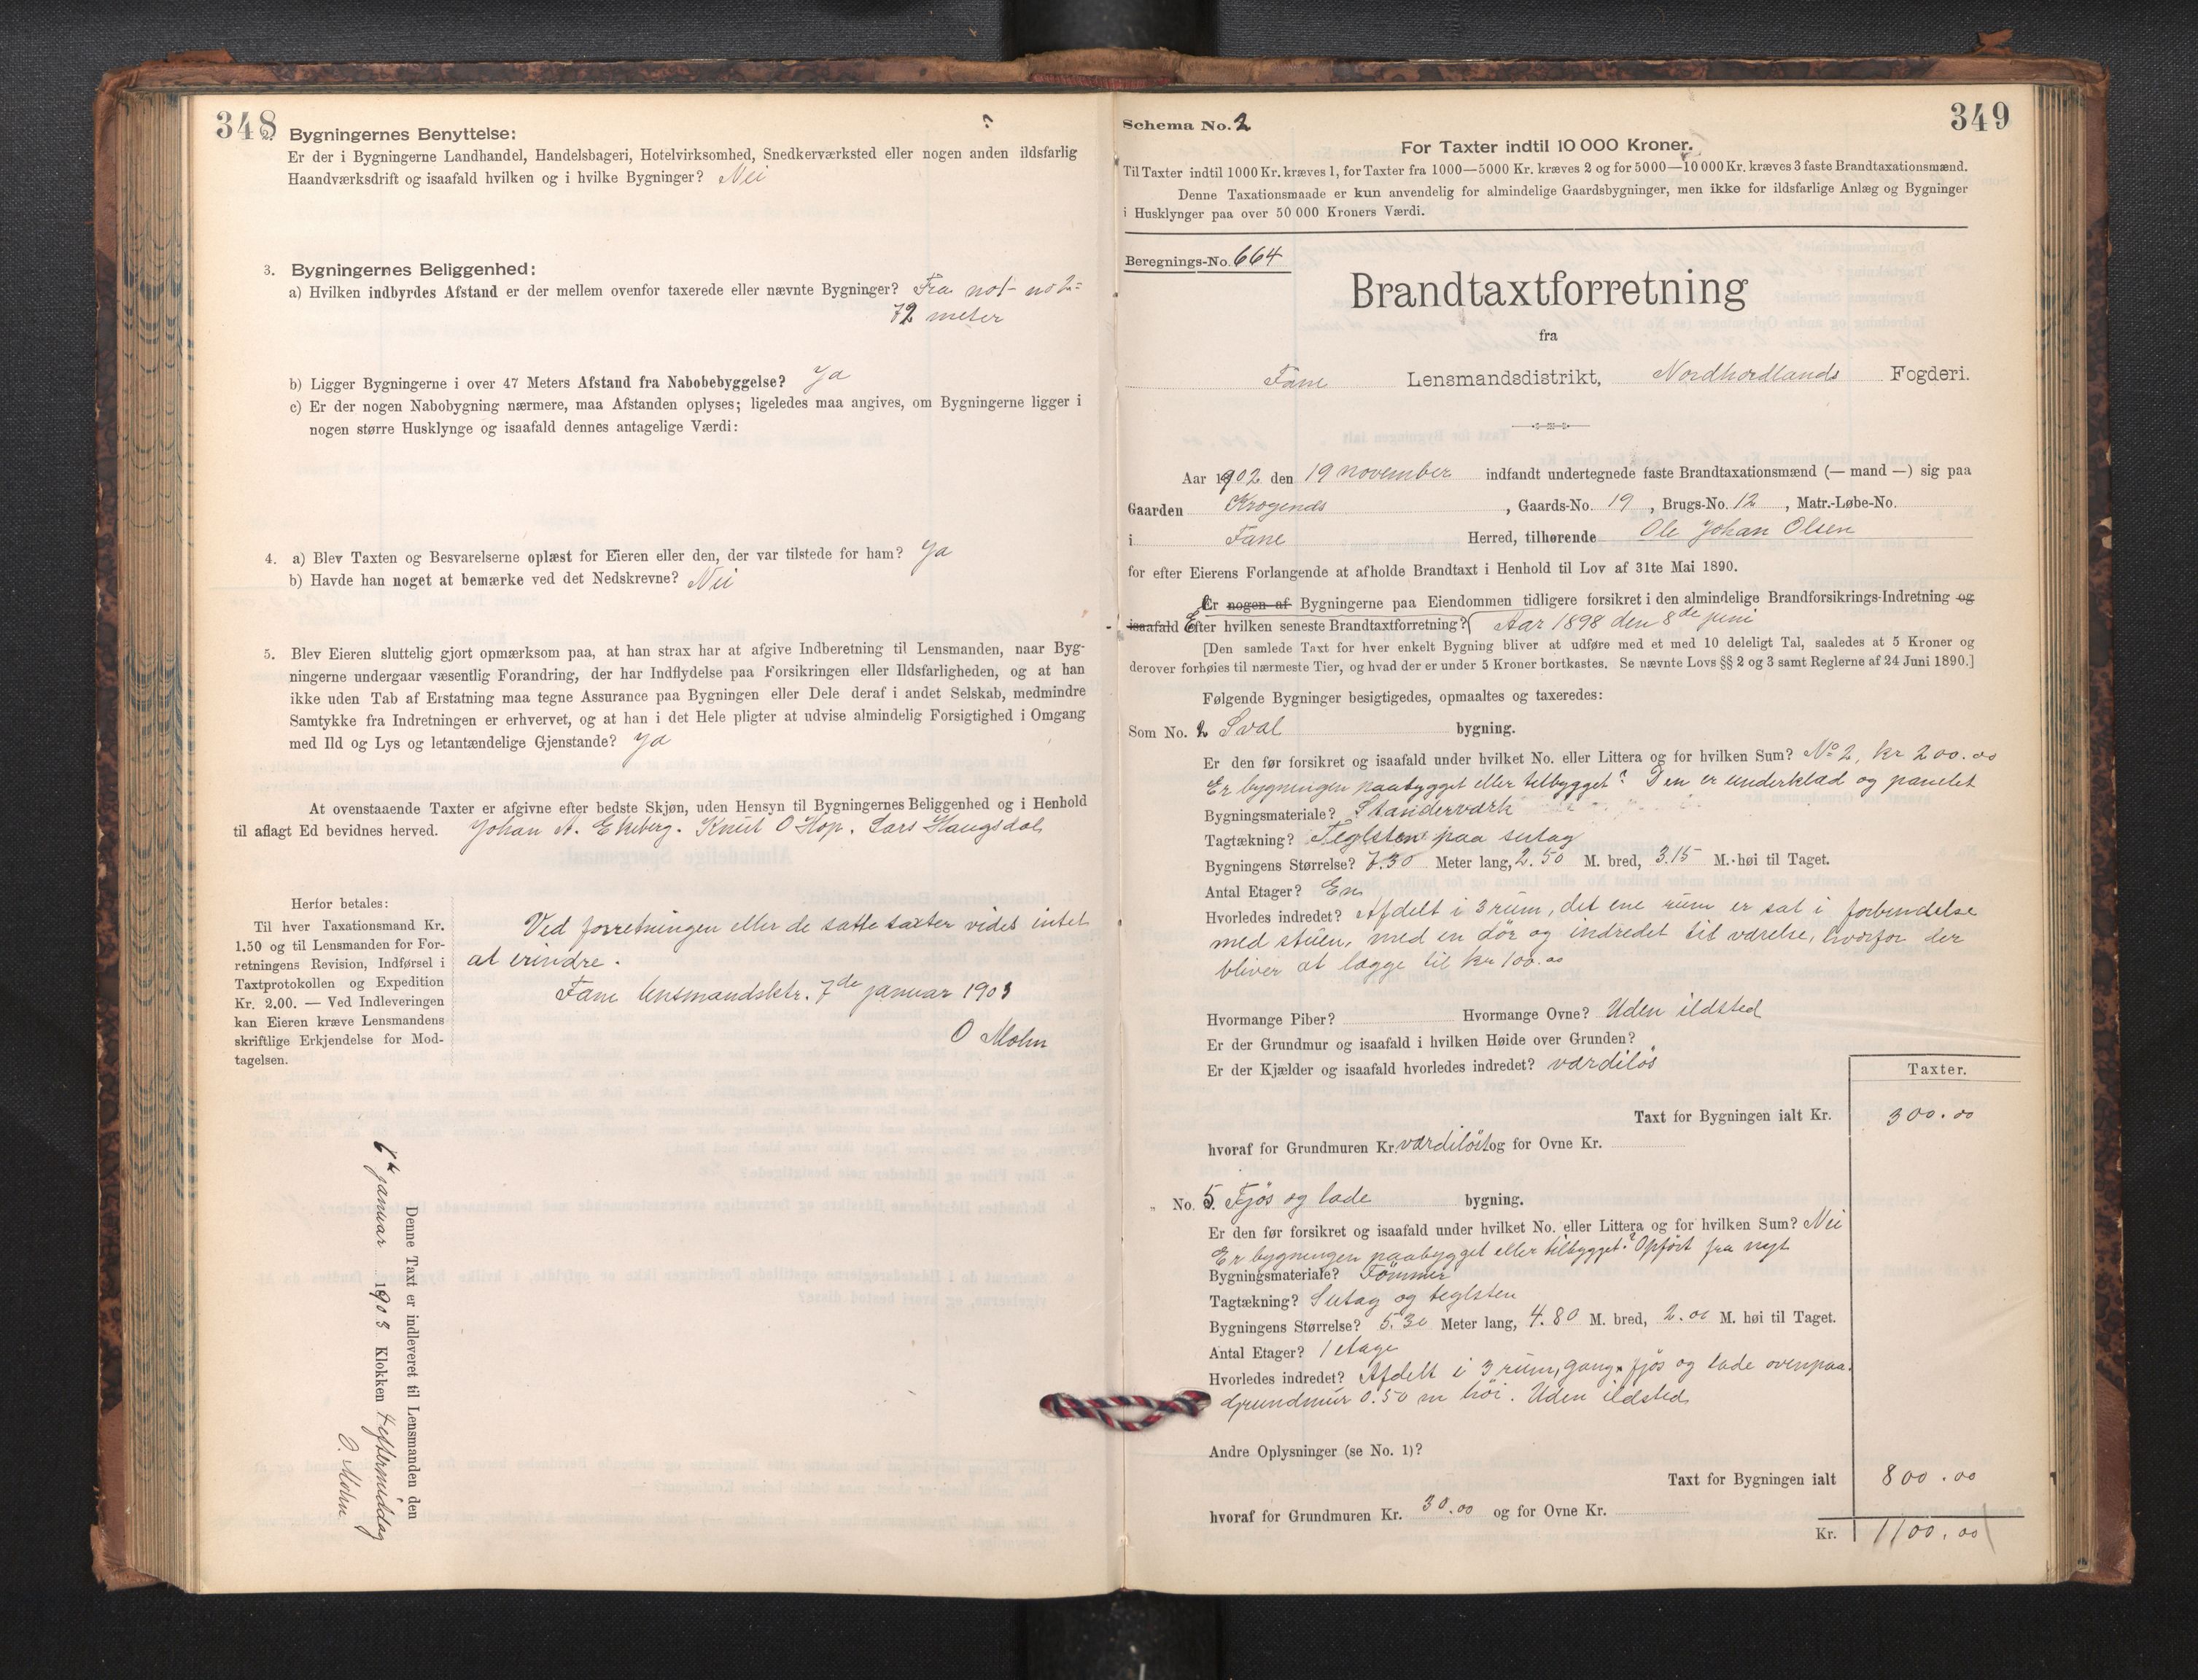 348
Bygningernes Benyttelse:
Er der i Bygningerne Landhandel, Handelsbageri, Hotelvirksomhed, Snedkerværksted eller nogen anden ildsfarlig
Haandværksdrift og isaafald hvilken og i hvilke Bygninger? Nei
3. Bygningernes Beliggenhed:
a) Hvilken indbyrdes Afstand er der mellem ovenfor taxerede eller nævnte Bygninger? Fra no 1 - no 2 =
72 meter
b) Ligger Bygningerne i over 47 Meters Afstand fra Nabobebyggelse? Ja
c) Er der nogen Nabobygning nærmere, maa Afstanden oplyses; ligeledes maa angives, om Bygningerne ligger i
nogen større Husklynge og isaafald dennes antagelige Værdi:
4. a) Blev Taxten og Besvarelserne oplæst for Eieren eller den, der var tilstede for ham? Ja
b) Havde han noget at bemærke ved det Nedskrevne? Nei
5. Blev Eieren sluttelig gjort opmærksom paa, at han strax har at afgive Indberetning til Lensmanden, naar Byg-
ningerne undergaar væsentlig Forandring, der har Indflydelse paa Forsikringen eller Ildsfarligheden, og at han
ikke uden Tab af Erstatning maa tegne Assurance paa Bygningen eller Dele deraf i andet Selskab, medmindre
Samtykke fra Indretningen er erhvervet, og at han i det Hele pligter at udvise almindelig Forsigtighed i Omgang
med Ild og Lys og letantændelige Gjenstande? Ja
At ovenstaaende Taxter er afgivne efter bedste Skjøn, uden Hensyn til Bygningernes Beliggenhed og i Henhold
til aflagt Ed bevidnes herved. Johan A. Ekeberg. Knut O Hop. Lars Haugsdal
Herfor betales:
Til hver Taxationsmand Kr.
1.50 og til Lensmanden for For-
retningens Revision, Indførsel i
Taxtprotokollen og Expedition
Kr. 2.00. — Ved Indleveringen
kan Eieren kræve Lensmandens
skriftlige Erkjendelse for Mod-
tagelsen.
Ved forretningen eller de satte taxter vides intet
at erindre.
Fane lensmandsktr. 7de januar 1903
O Mohn
Denne Taxt er indleveret til Lensmanden den
6te januar 1903 Klokken 4 eftermiddag
O. Mohn
349
Schema No. 2
For Taxter indtil 10 000 Kroner.
Til Taxter indtil 1000 Kr. kræves 1, for Taxter fra 1000—5000 Kr. kræves 2 og for 5000—10 000 Kr. kræves 3 faste Brandtaxationsmænd.
Denne Taxationsmaade er kun anvendelig for almindelige Gaardsbygninger, men ikke for ildsfarlige Anlæg og Bygninger
i Husklynger paa over 50 000 Kroners Værdi.
Beregnings-No. 664
Brandtaxtforretning
fra
Fane Lensmandsdistrikt, Nordhordlands Fogderi.
Aar 1902 den 19 november indfandt undertegnede faste Brandtaxationsmænd (— mand —) sig paa
Gaarden Krogends , Gaards-No. 19 , Brugs-No. 12 , Matr.-Løbe-No.
i Fane Herred, tilhørende Ole Johan Olsen
for efter Eierens Forlangende at afholde Brandtaxt i Henhold til Lov af 31te Mai 1890.
Er nogen af Bygningerne paa Eiendommen tidligere forsikret i den almindelige Brandforsikrings-Indretning og
isaafald Efter hvilken seneste Brandtaxtforretning? Aar 1898 den 8de juni
[Den samlede Taxt for hver enkelt Bygning bliver at udføre med et med 10 deleligt Tal, saaledes at 5 Kroner og
derover forhøies til nærmeste Tier, og hvad der er under 5 Kroner bortkastes. Se nævnte Lovs §§ 2 og 3 samt Reglerne af 24 Juni 1890.]
Følgende Bygninger besigtigedes, opmaaltes og taxeredes:
Som No. 2 Sval bygning.
Er den før forsikret og isaafald under hvilket No. eller Littera og for hvilken Sum? No 2, kr 200.00
Er bygningen paabygget eller tilbygget? Den er underklæd og panelet
Bygningsmateriale? Standerværk
Tagtækning? Teglsten paa sutag
Bygningens Størrelse? 7.30 Meter lang, 2.50 M. bred, 3.15 M. høi til Taget.
Antal Etager? En
Hvorledes indredet? Afdelt i 3 rum, det ene rum er sat i forbindelse
med stuen, med en dør og indredet til værelse, hvorfor der
bliver at lægge til kr 100.00
Hvormange Piber? Hvormange Ovne? Uden ildsted
Er der Grundmur og isaafald i hvilken Høide over Grunden?
Er der Kjælder og isaafald hvorledes indredet? værdiløs
Taxter.
Taxt for Bygningen ialt Kr. 300.00
hvoraf for Grundmuren Kr. værdiløst og for Ovne Kr.
„ No. 5. Fjøs og lade bygning.
Er den før forsikret og isaafald under hvilket No. eller Littera og for hvilken Sum? Nei
Er bygningen paabygget eller tilbygget? Opført fra nyt
Bygningsmateriale? Tømmer
Tagtækning? Sutag og teglsten
Bygningens Størrelse? 5.30 Meter lang, 4.80 M. bred, 2.00 M. høi til Taget.
Antal Etager? 1 etage
Hvorledes indredet? Afdelt i 3 rum, gang, fjøs og lade ovenpaa.
Grundmur 0.50 m høi. Uden ildsted
Andre Oplysninger (se No. 1)?
Taxt for Bygningen ialt 800.00
hvoraf for Grundmuren Kr. 30.00 og for Ovne Kr.
Kr. 1100.00